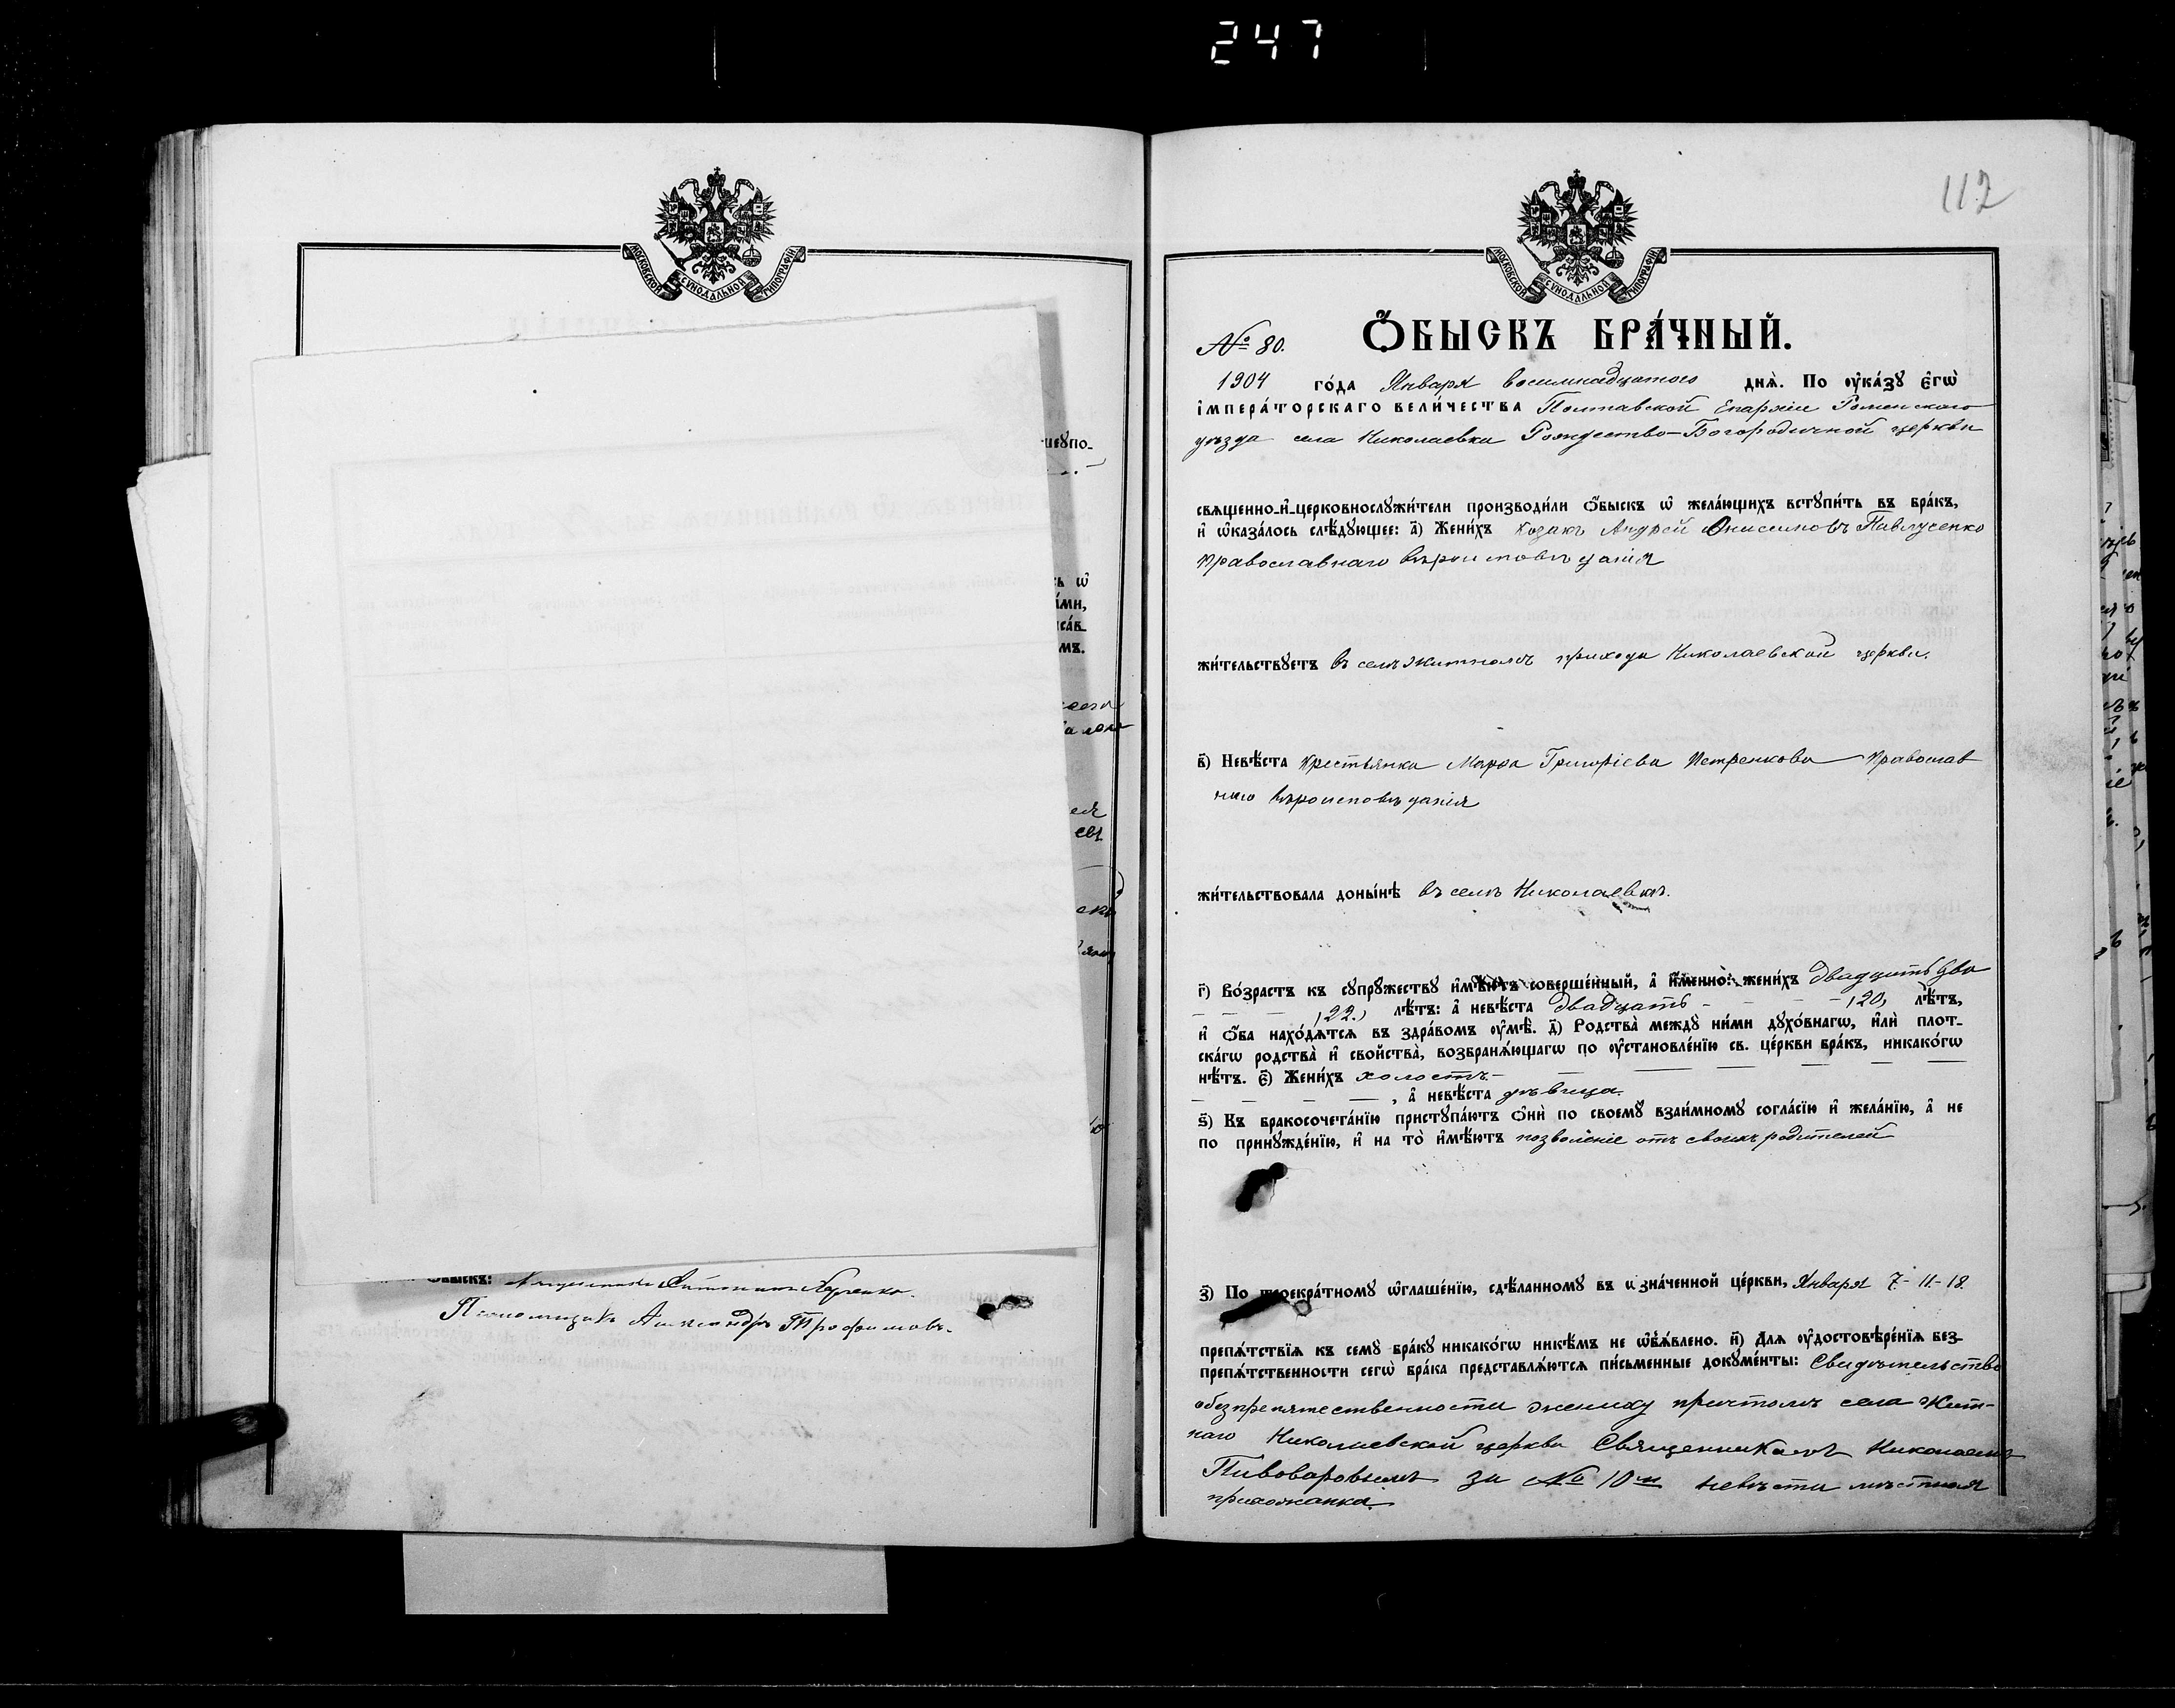 247
МОСКОВСКОЙ СУНОДАЛЬНОЙ ТИПОГРАФІИ
Обыскъ:
Псаломщикъ Александръ Трофимовъ.
112
МОСКОВСКОЙ СУНОДАЛЬНОЙ ТИПОГРАФІИ
№ 80. Ѻ҆БЫСКЪ БРА́ЧНЫЙ.
1904 го́да Января восемнадцатаго днѧ̀. По ᲂу҆ка́зꙋ є҆гѡ̀
і҆мпера́торскаго вели́чества Полтавской Епархіи Роменскаго
уѣзда села Николаевки Рождество-Богородичной церкви
свѧщенно-и҆-церковнослꙋжи́тели производи́ли ѻ҆́быскъ ѡ҆ жела́ющихъ встꙋпи́ть въ бра́къ,
и҆ ѡ҆каза́лось слѣ́дꙋющее: а҃) Жени́хъ козакъ Андрей Онисимовъ Павлусенко
православнаго вѣроисповѣданія
жи́тельствꙋетъ въ селѣ Житномъ прихода Николаевской церкви.
в҃) Невѣ́ста крестьянка Марѳа Григоріева Петренкова православ
наго вѣроисповѣданія
жи́тельствовала доны́нѣ въ селѣ Николаевкѣ.
г҃) Во́зрастъ къ сꙋпрꙋ́жествꙋ и҆мѣ́ютъ соверше́нный, а҆ и҆́менно: жени́хъ двадцать два
(22.) лѣ́тъ: а҆ невѣ́ста двадцать - - - (20) лѣ́тъ,
и҆ ѻ҆́ба нахо́дѧтсѧ въ здра́вомъ ᲂу҆мѣ̀. д҃) Родства̀ междꙋ̀ ни́ми дꙋхо́внагѡ, и҆лѝ плот-
ска́гѡ родства̀ и҆ свойства̀, возбранѧ́ющагѡ по ᲂу҆становле́нїю св. це́ркви бра́къ, никако́гѡ
нѣ́тъ. є҃) Жени́хъ холостъ. - - - -
- - - -, а҆ невѣ́ста дѣвица.
ѕ҃) Къ бракосочета́нїю пристꙋпа́ютъ ѻ҆нѝ по своемꙋ̀ взаи́мномꙋ согла́сїю и҆ жела́нїю, а҆ не
по принꙋжде́нїю, и҆ на то̀ и҆мѣ́ютъ позволеніе отъ своихъ родителей
з҃) По троекра́тномꙋ ѡ҆глаше́нїю, сдѣ́ланномꙋ въ означенной це́ркви, Января 7 - 11 - 18.
препѧ́тствїѧ къ семꙋ̀ бра́кꙋ никако́гѡ никѣ́мъ не ѡ҆б̾ѧ́влено. и҃) Длѧ ᲂу҆достовѣре́нїѧ без-
препѧ́тственности сегѡ̀ бра́ка представлѧ́ютсѧ пи́сьменные докꙋме́нты: Свидѣтельство
о безпрепятственности жениху причтомъ села Жит-
наго Николаевской церкви Священникомъ Николаемъ
Пивоваровымъ за № 10 м невѣста мѣстная
прихожанка.